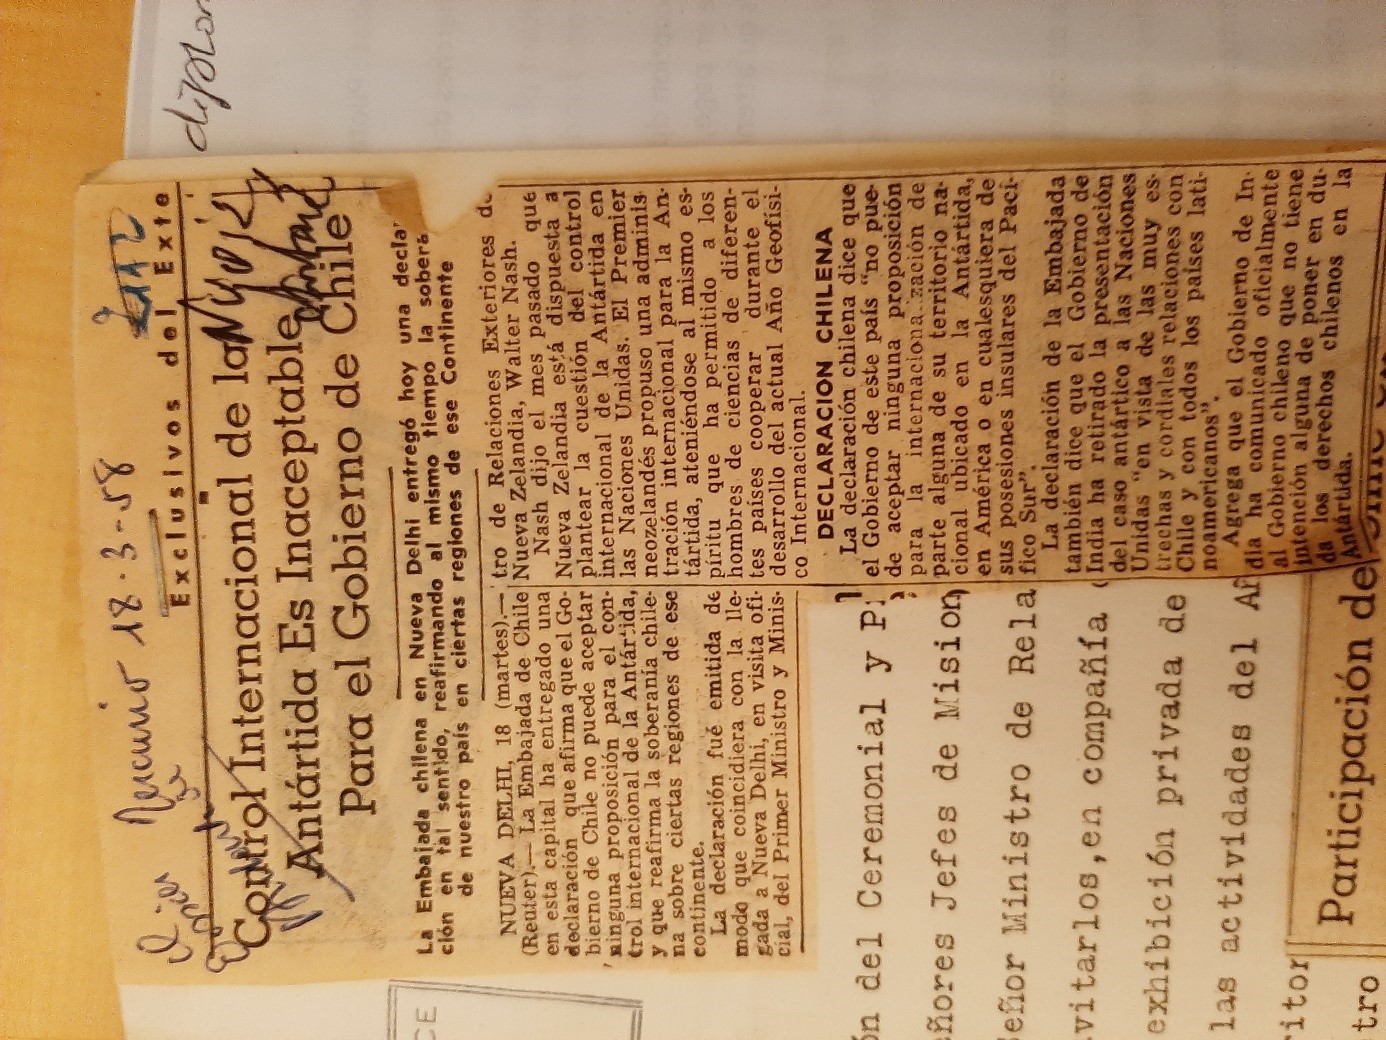 diplom
Mercurio 18-3-58
Exclusivos del Exte
Control Internacional de la
Antártida Es Inaceptable
Para el Gobierno de Chile
La Embajada chilena en Nueva Delhi entregó hoy una decla
ción en tal sentido, reafirmando al mismo tiempo la sobera
de nuestro país en ciertas regiones de ese Continente
NUEVA DELHI, 18 (martes).—
(Reuter).— La Embajada de Chile
en esta capital ha entregado una
declaración que afirma que el Go-
bierno de Chile no puede aceptar
ninguna proposición para el con-
trol internacional de la Antártida,
y que reafirma la soberanía chile-
na sobre ciertas regiones de ese
continente.
La declaración fué emitida de
modo que coincidiera con la lle-
gada a Nueva Delhi, en visita ofi-
cial, del Primer Ministro y Minis-
tro de Relaciones Exteriores de
Nueva Zelandia, Walter Nash.
Nash dijo el mes pasado que
Nueva Zelandia está dispuesta a
plantear la cuestión del control
internacional de la Antártida en
las Naciones Unidas. El Premier
neozelandés propuso una adminis-
tración internacional para la An-
tártida, ateniéndose al mismo es-
píritu que ha permitido a los
hombres de ciencias de diferen-
tes países cooperar durante el
desarrollo del actual Año Geofísi-
co Internacional.
DECLARACION CHILENA
La declaración chilena dice que
el Gobierno de este país "no pue-
de aceptar ninguna proposición
para la internacionalización de
parte alguna de su territorio na-
cional ubicado en la Antártida,
en América o en cualesquiera de
sus posesiones insulares del Pací-
fico Sur".
La declaración de la Embajada
también dice que el Gobierno de
India ha retirado la presentación
del caso antártico a las Naciones
Unidas "en vista de las muy es-
trechas y cordiales relaciones con
Chile y con todos los países lati-
noamericanos".
Agrega que el Gobierno de In-
dia ha comunicado oficialmente
al Gobierno chileno que no tiene
intención alguna de poner en du-
da los derechos chilenos en la
Antártida.
ón del Ceremonial y P
eñores Jefes de Mision
Señor Ministro de Rela
vitarlos,en compañía
exhibición privada de
las actividades del Añ
ritor
tro
Participación de
CE